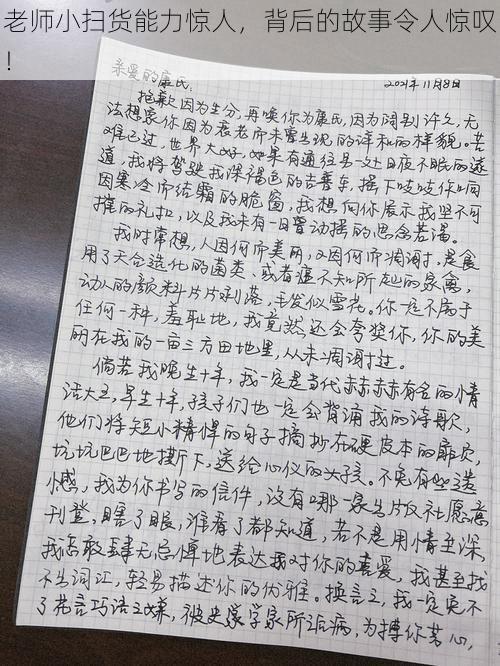 老师小扫货能力惊人，背后的故事令人惊叹
！
亲爱的康氏：
2021年11月8日
抱歉因为生分，再唤你为康氏，因为阔别许久，无
法想象你因为衰老而未曾出现的详和的样貌。若
难已过，世界大好，如果有通往另一处日夜不眠的遂
道，我将驾驶我深褐色的吉普车，摇下吱吱作响
因寒冷而结霜的脆窗，我想向你展示我坚不可
摧的礼拜，以及我未有一日曾动摇的思念若渴。
我时常想，人因何而美丽，又因何而凋谢，是食
用了天合造化的菌类、或者遭不知所起的家禽，
动人的颜料片片剥落，毛发似雪花。你一定不属于
任何一种，羞耻地，我竟然还会夸奖你，你的美
丽在我的一亩三方田地里，从未凋谢过。
倘若我晚生十年，我一定是当代赫赫赫有名的情
话大王，早生十年，孩子们也一定会背诵我的诗歌，
他们将短小精悍的句子摘抄在硬皮本的扉页，
坑坑巴巴地撕下，送给心仪的女孩。不免有些遗
憾，我为你书写的信件，没有哪一家出版社愿意
刊登，瞎了眼，谁看了都知道，若不是用情至深，
我怎敢肆无忌惮地表达我对你的喜爱，我甚至找
不出词汇，轻易描述你的优雅。换言之，我一定免不
了花言巧语之嫌，被史家学家所诟病，为搏你芳心，